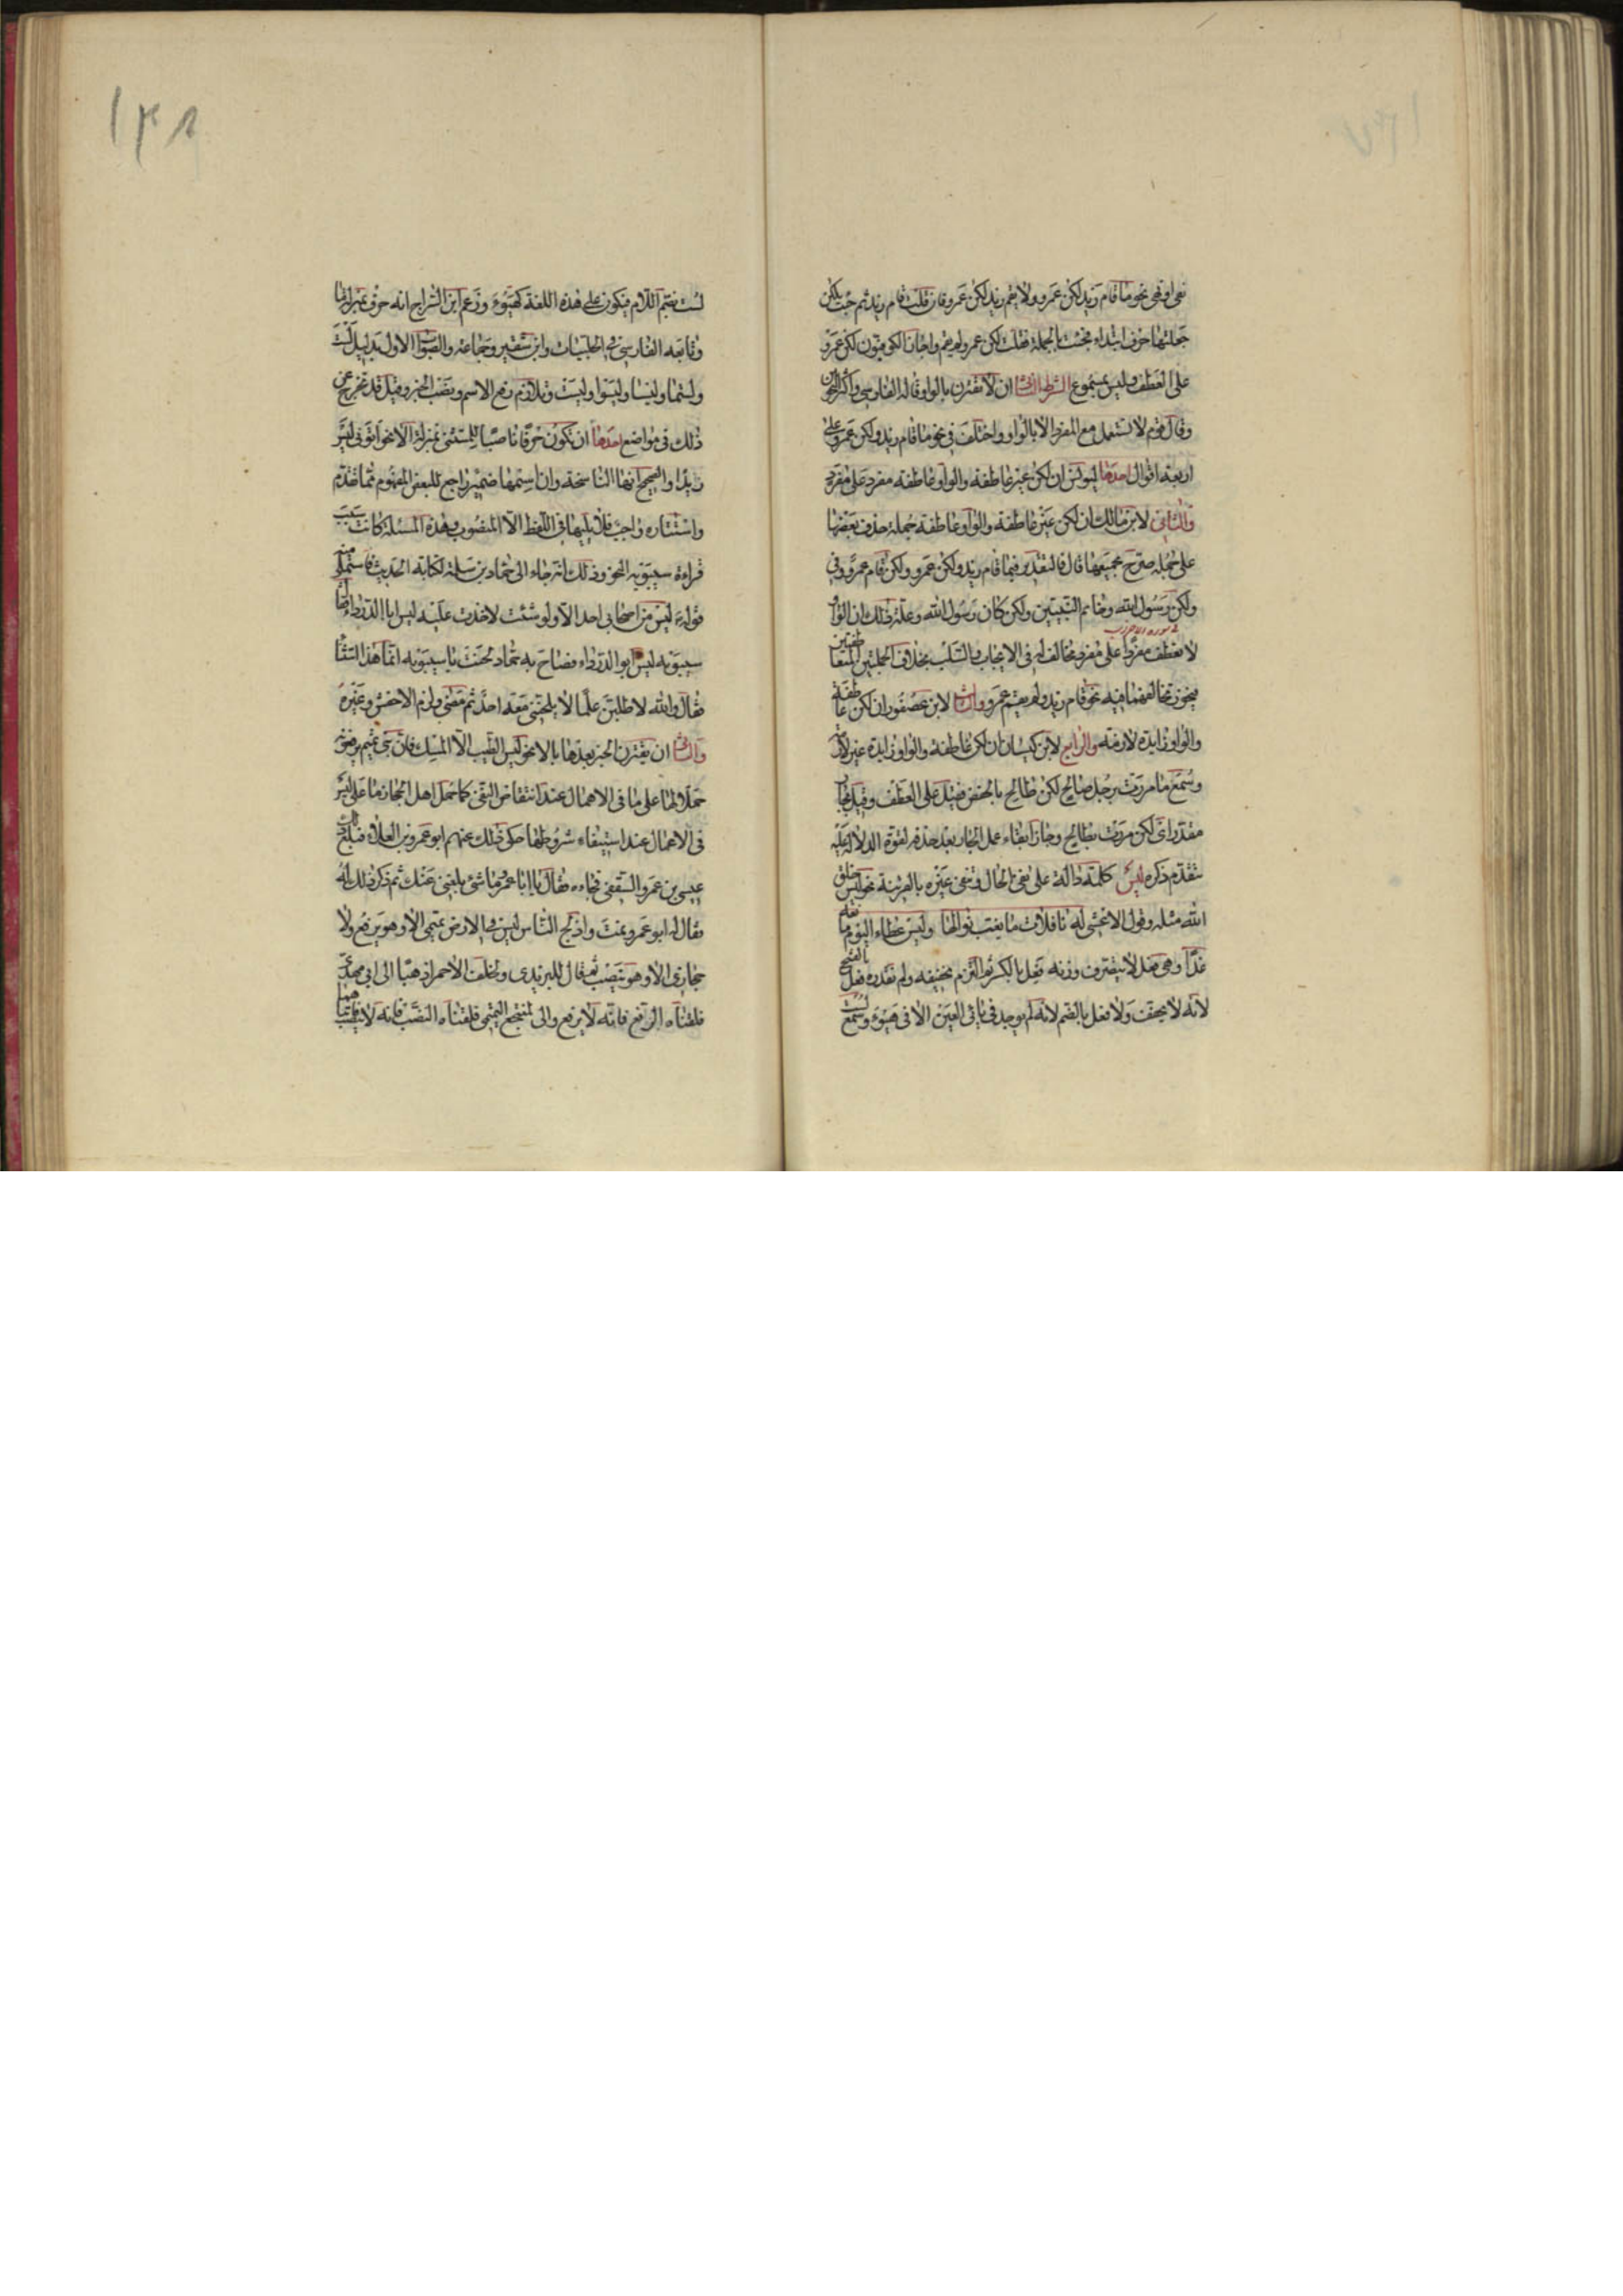 نفى او نهى نحو ما قام زيد لكن عمرو ولا يقم زيد لكن عمرو فان قلت قام زيد ثم جئت بلكن
جعلتها حرف ابتداء فجئت بالجملة فقلت لكن عمرو لم يقم واجاز الكوفيون لكن عمرو
على العطف وليس بمسموع الشرط الثانى ان لا تقترن بالواو قاله الفارسى واكثر النحويين
وقال قوم لا تستعمل مع المفرد الا بالواو واختلف فى نحو ما قام زيد ولكن عمرو على
اربعة اقوال احدها ليونس ان لكن غير عاطفة والواو عاطفة مفرد على مفرد
والثانى لابن مالك ان لكن غير عاطفة والواو عاطفة جملة حذف بعضها
على جملة صرح بجميعها قال فالتقدير فى ما قام زيد ولكن عمرو ولكن قام عمرو وفى
ولكن رسول الله وخاتم النبيين ولكن كان رسول الله وعلة ذلك ان الواو
لا تعطف مفردا على مفرد مخالف له فى الايجاب والسلب بخلاف الجملتين المتعاطفتين
فيجوز تخالفهما فيه نحو قام زيد ولم يقم عمرو والثالث لابن عصفور ان لكن عاطفة
والواو زايدة لازمة والرابع لابن كيسان ان لكن عاطفة والواو زايدة غير لازمة
وسمع ما مررت برجل صالح لكن طالح بالخفض فقيل على العطف وقيل بجار
مقدر اى لكن مررت بطالح وجاز ابقاء عمل الجار بعد حذفه لقوة الدلالة عليه
بتقدم ذكره ليس كلمة دالة على نفى الحال وتنفى غيره بالقرينة نحو ليس خلق
الله مثله وقول الاعشى له نافلات ما يغب نوالها وليس عطاء اليوم مانعه
غدا وهى فعل لا يتصرف وزنه فعل بالكسر ثم التزم تخفيفه ولم نقدره فعل بالفتح
لانه لا يخفف ولا فعل بالضم لانه لم يوجد فى يائى العين الا فى هيؤ وسمع لست
لست بضم اللام فيكون على هذه اللغة كهيؤ وزعم ابن السراج انه حرف بمنزلة ما
وتابعه الفارسى فى الحلبيات وابن شقير وجماعة والصواب الاول بدليل لست
ولستما وليسا وليسوا وليست وتلازم رفع الاسم ونصب الخبر وقيل قد تخرج عن
ذلك فى مواضع احدها ان تكون حرفا ناصبا للمستثنى بمنزلة الا نحو اتونى ليس
زيدا والصحيح انها الناسخة وان اسمها ضمير راجع للبعض المفهوم مما تقدم
واستتاره واجب فلا يليها فى اللفظ الا المنصوب وهذه المسئلة كانت سبب
قراءة سيبويه النحو وذلك انه جاء الى حماد بن سلمة لكتابة الحديث فاستملى منه
قوله ليس من اصحابى احد الا ولو شئت لاخذت عليه ليس ابا الدرداء فقال
سيبويه ليس ابو الدرداء فصاح به حماد لحنت يا سيبويه انما هذا استثناء
فقال والله لاطلبن علما لا يلحننى معه احد ثم مضى ولزم الاخفش وغيره
والثانى ان يقترن الخبر بعدها بالا نحو ليس الطيب الا المسك فان بنى تميم يرفعونه
حملا لها على ما فى الاهمال عند انتقاض النفى كما حمل اهل الحجاز ما على ليس
فى الاعمال عند استيفاء شروطها حكى ذلك عنهم ابو عمرو بن العلاء فبلغ ذلك
عيسى بن عمرو الثقفى فجاءه فقال يا ابا عمرو ما شئ بلغنى عنك ثم ذكر ذلك له
فقال له ابو عمرو نمت وادلج الناس ليس فى الارض تميمى الا وهو يرفع ولا
حجازى الا وهو ينصب ثم قال لليزيدى ولخلف الاحمر اذهبا الى ابى مهدى
فلقناه الرفع فانه لا يرفع والى المنتجع التميمى فلقناه النصب فانه لا ينصب فاتياهما